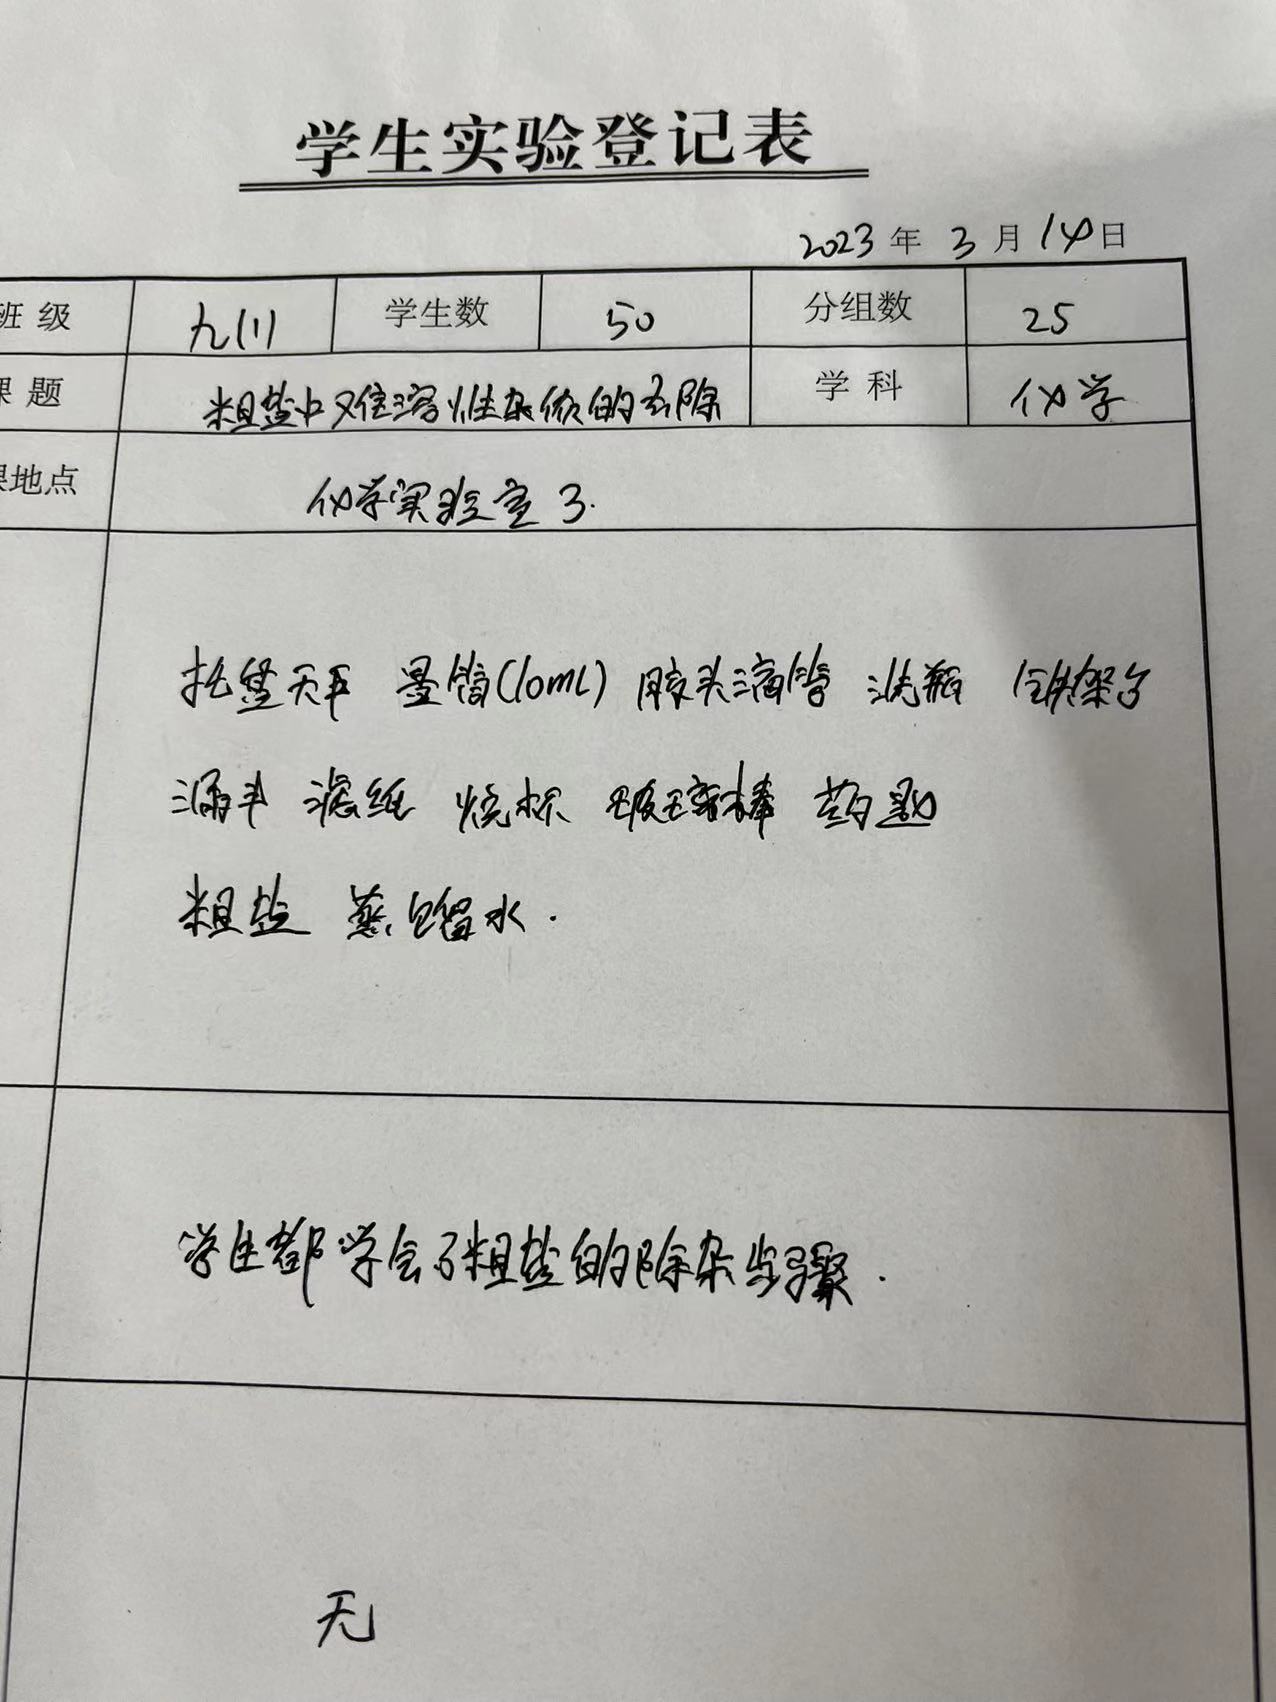 学生实验登记表
2023年3月14日
班级 九(1) 学生数 50 分组数 25
课题 粗盐中难溶性杂质的去除 学科 化学
课地点 化学实验室3.
托盘天平 量筒(10mL) 胶头滴管 洗瓶 铁架台
漏斗 滤纸 烧杯 玻璃棒 药匙
粗盐 蒸馏水.
学生都学会了粗盐的除杂步骤.
无